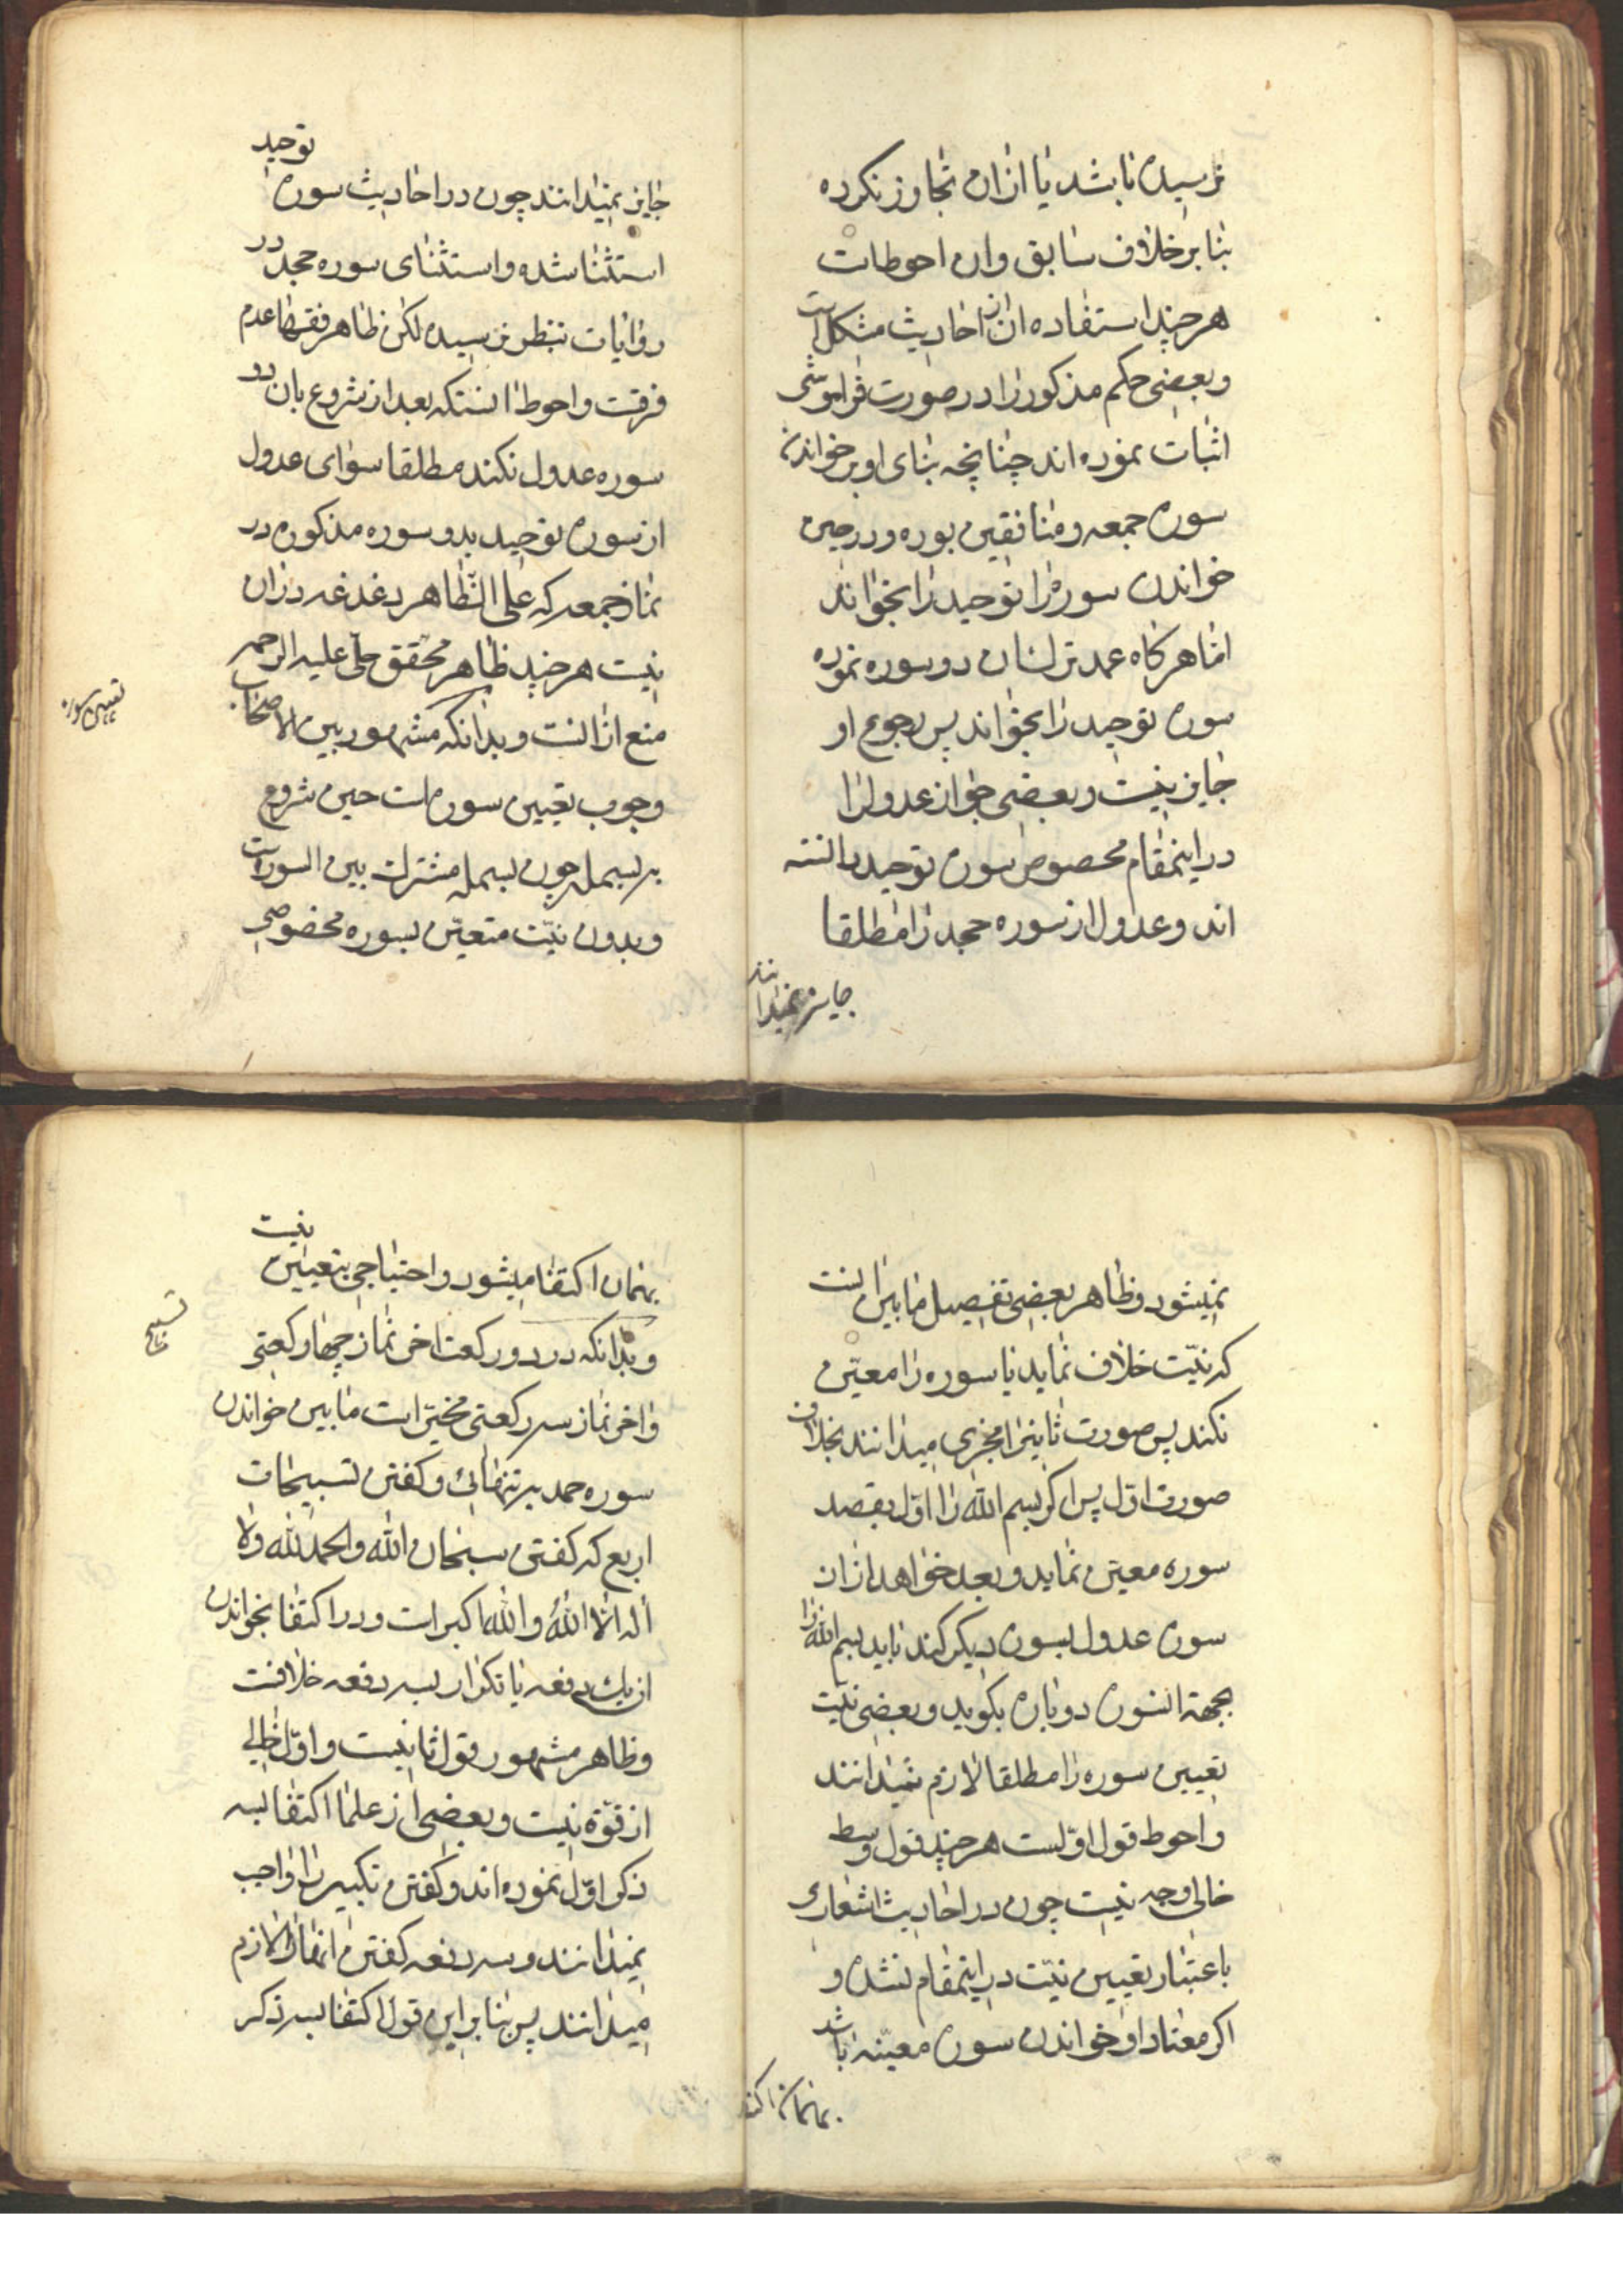 نرسیده باشد یا ازان تجاوز نکرده
بنا بر خلاف سابق وان احوطات
هر چند استفاده ان از احادیث مشکل است
و بعضی حکم مذکور را در صورت فراموشی
اثبات نموده اند چنانچه بنای او بر خواندن
سوره جمعه و منافقین بوده و در حین
خواندن سوره را توحید را بخواند
اما هرگاه عمد ترک ان دو سوره نموده
سوره توحید را بخواند پس رجوع او
جایز نیست و بعضی جواز عدول را
در اینمقام مخصوص سوره توحید دانسته
اند و عدول از سوره جحد را مطلقا
جایز نمیدانند
توحید
جایز نمیدانند چون در احادیث سوره
استثنا شده و استثنای سوره جحد در
روایات بنظر نرسیده لکن ظاهر فقها عدم
فرقست و احوط انستکه بعد از شروع بان دو
سوره عدول نکند مطلقا سوای عدول
از سوره توحید بدو سوره مذکوره در
نماز جمعه که علی الظّاهر دغدغه دران
نیست هر چند ظاهر محقق حلّی علیه الرحمه
منع از انست و بدانکه مشهور بین الاصحاب
تعیین سوره
وجوب تعیین سوره است حین شروع
بر بسمله چون بسمله مشترک بین السورات
و بدون نیّت متعیّن بسوره مخصوصی
نمیشود و ظاهر بعضی تفصیل ما بین انست
که نیّت خلاف نماید یا سوره را معیّن
نکند پس صورت ثانی را مجزی میدانند بخلاف
صورت اوّل پس اگر بسم الله را اوّل بقصد
سوره معیّن نماید و بعد خواهد ازان
سوره عدول بسوره دیگر کند باید بسم الله را
بجهة انسوره دوباره بگوید و بعضی نیّت
تعیین سوره را مطلقا لازم نمیدانند
و احوط قول اوّلست هر چند قول وسط
خالی اوجه نیست چون در احادیث اشعاری
باعتبار تعیین نیّت در اینمقام نشده و
اگر معتاد او خواندن سوره معیّنه باشد
بهمان اکتفا
نیت
بهمان اکتفا میشود و احتیاجی بتعیین
و بدانکه در دو رکعت اخر نماز چهار رکعتی
تسبیح
و اخر نماز سه رکعتی مخیّر است ما بین خواندن
سوره حمد بر تنهائی و گفتن تسبیحات
اربع که گفتن سبحان الله و الحمد لله و لا
اله الّا اللهُ و الله اکبر است و در اکتفا بخواندن
ان یک دفعه یا تکرار بسه دفعه خلافست
و ظاهر مشهور قول ثانیست و اوّل خالی
از قوّة نیست و بعضی از علما اکتفا بسه
ذکر اوّل نموده اند و گفتن تکبیر را واجب
نمیدانند و سه دفعه گفتن انها را لازم
میدانند پس بنا بر این قول اکتفا بسه ذکر